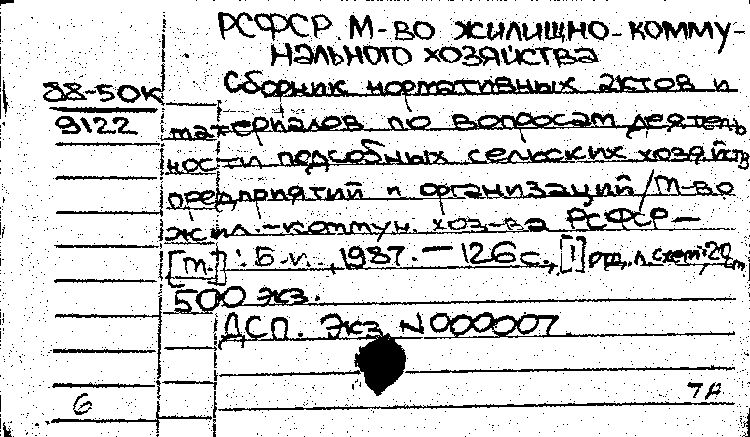 РСФСР. М-во жилищно-комму-
нального хозяйства
88-50к
Сборник нормативных актов и
9122
материалов по вопросам деятель
ности подсобных сельских хозяйств
предприятий и организаций/М-во
жил.-коммун. хоз-ва РСФСР —
[М.] : Б.и., 1987. — 126 с., [1] л. схем; 20 см
500 экз.
ДСП. Экз. N000007.
6
7А